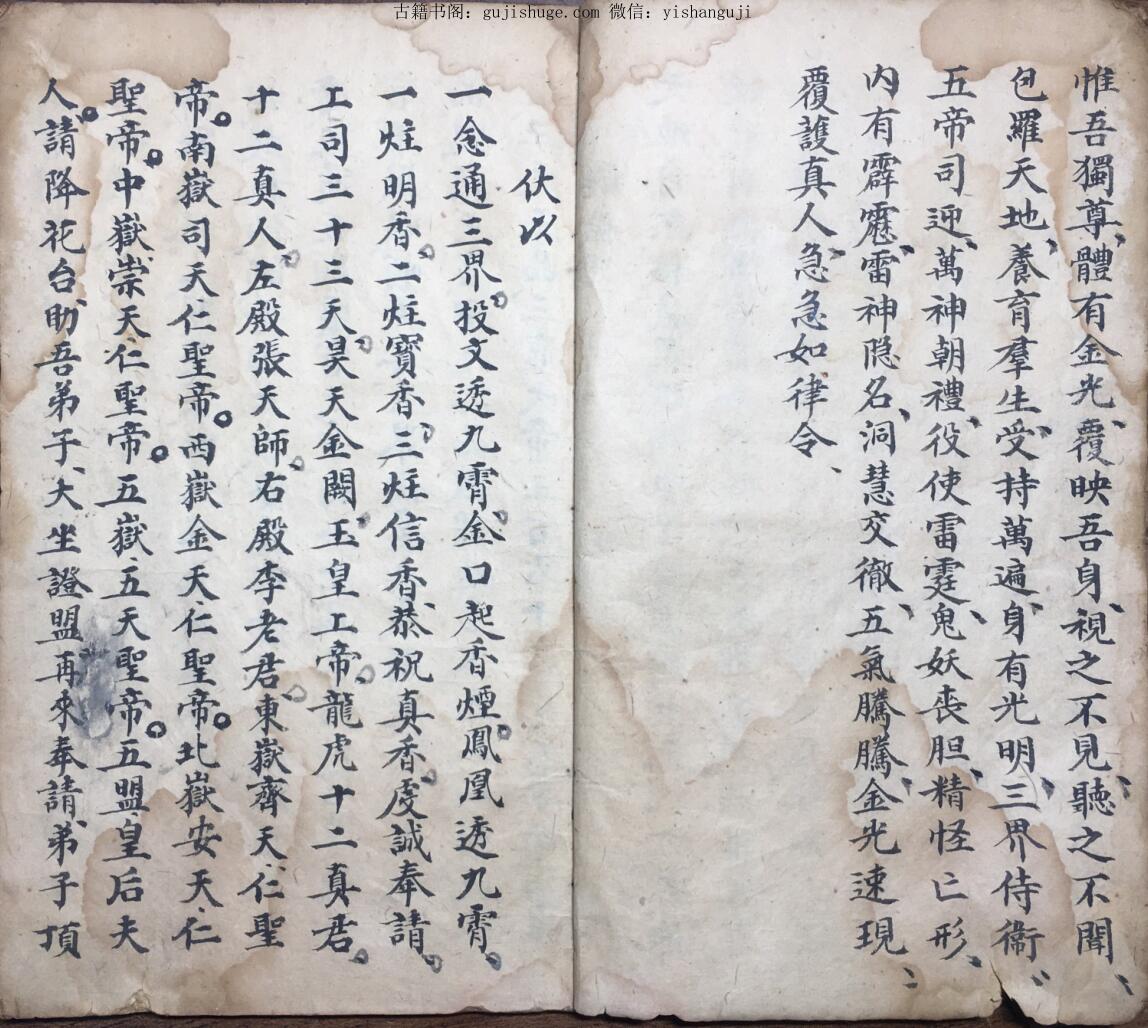 古籍书阁：gujishuge.com 微信：yishanguji
惟吾獨尊、體有金光、覆映吾身、視之不見、聽之不聞、
包羅天地、養育羣生、受持萬遍、身有光明、三界侍衛、
五帝司迎、萬神朝禮、役使雷霆、鬼妖丧胆、精怪亡形、
内有霹靂、雷神隐名、洞慧交徹、五氣騰騰、金光速現、
覆護真人、急急如律令、
伏以
一念通三界。投文透九霄。金口起香煙。鳳凰透九霄。
一炷明香。二炷寶香。三炷信香。恭祝真香。虔誠奉請。
工司三十三天。昊天金闕。玉皇工帝。龍虎十二真君。
十二真人。左殿張天師。右殿李老君。東嶽齊天仁聖
帝。南嶽司天仁聖帝。西嶽金天仁聖帝。北嶽安天仁
聖帝。中嶽崇天仁聖帝。五嶽五天聖帝。五盟皇后夫
人。請降花台、助吾弟子、大坐證盟再來奉請、弟子頂